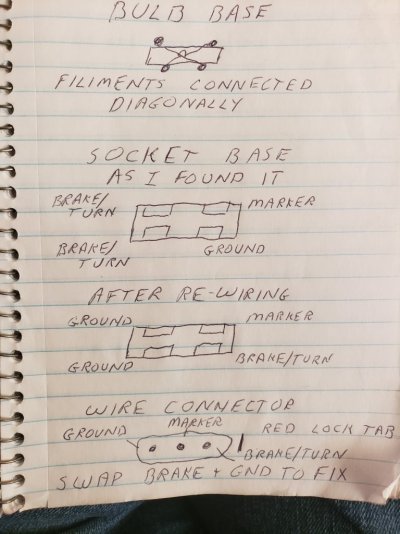 BULB BASE
FILIMENTS CONNECTED
DIAGONALLY
SOCKET BASE
AS I FOUND IT
BRAKE/
TURN
MARKER
BRAKE/
TURN
GROUND
AFTER RE-WIRING
GROUND
MARKER
GROUND
BRAKE/TURN
WIRE CONNECTOR
GROUND
MARKER
RED LOCK TAB
BRAKE/TURN
SWAP BRAKE + GND TO FIX